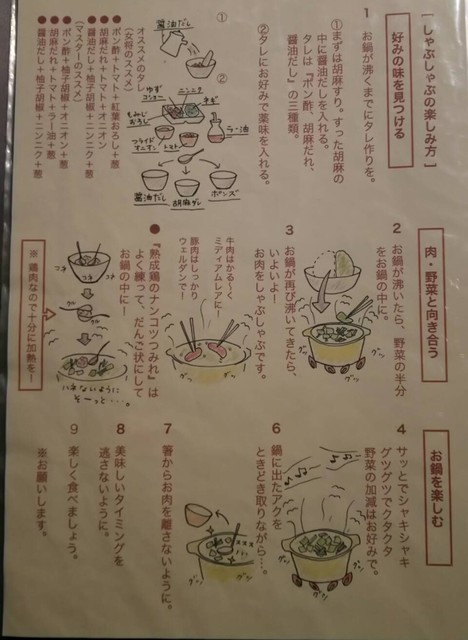 ［しゃぶしゃぶの楽しみ方］
好みの味を見つける
1 お鍋が沸くまでにタレ作りを。
①まずは胡麻すり。すった胡麻の
中に醤油だしを入れる。
タレは『ポン酢、胡麻だれ、
醤油だし』の三種類。
②タレにお好みで薬味を入れる。
①
醤油だし
②
ゆず
コショー
ニンニク
ネギ
もみじ
おろし
ラー油
フライド
オニオン
トマト
醤油だし
胡麻ダレ
ポンズ
オススメのタレ
（女将のススメ）
●ポン酢＋トマト＋紅葉おろし＋葱
●胡麻だれ＋トマト＋オニオン
●醤油だし＋トマト＋ニンニク＋葱
（マスターのススメ）
●ポン酢＋柚子胡椒＋オニオン＋葱
●胡麻だれ＋トマト＋ラー油＋葱
●醤油だし＋柚子胡椒＋ニンニク＋葱
肉・野菜と向き合う
2 お鍋が沸いたら、野菜の半分
をお鍋の中に。
グッ グッ
3 お鍋が再び沸いてきたら、
いよいよ！
お肉をしゃぶしゃぶです。
牛肉はかる〜く
ミディアムレアに
豚肉はしっかり
ウェルダンで！
グッ グッ
●『熟成鶏のナンコツつみれ』は
よく練って、だんご状にして
お鍋の中に！
つみ つみ
にげないように
そーっと・・・。
※鶏肉なので十分に加熱を！
お鍋を楽しむ
4 サッとでシャキシャキ
グツグツでクタクタ
野菜の加減はお好みで。
グッ グッ
6 鍋に出たアクを
ときどき取りながら…。
グッ グッ
7 箸からお肉を離さないように。
8 美味しいタイミングを
逃さないように。
9 楽しく食べましょう。
※お願いします。